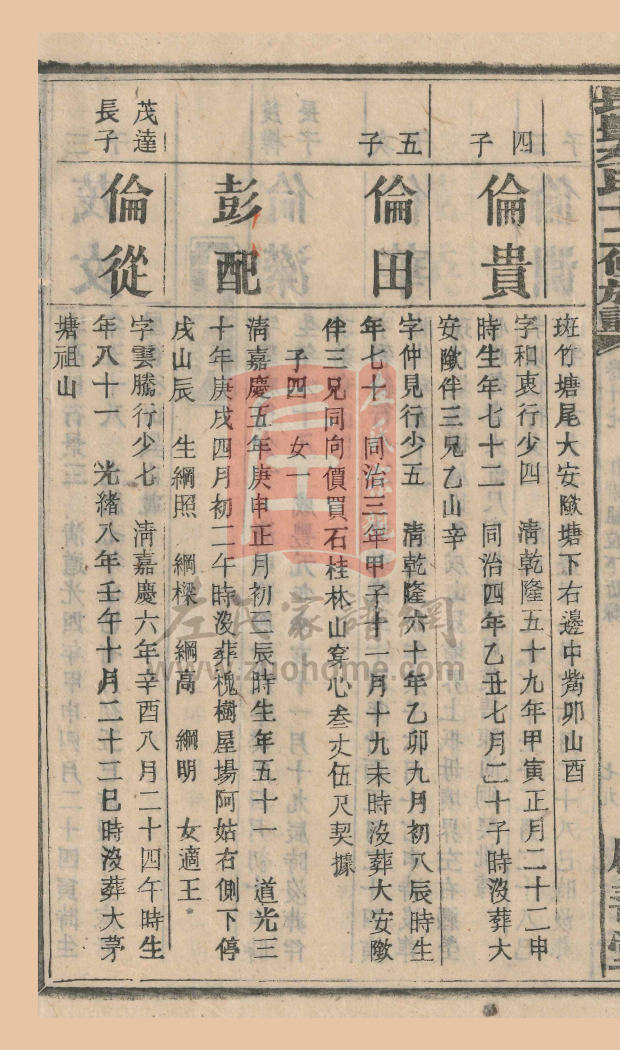 斑竹塘尾大安歞塘下右邊中觜卯山酉
四子
倫貴
字和衷行少四 清乾隆五十九年甲寅正月二十二申
時生年七十二 同治四年乙丑七月二十子時沒葬大
安歞伴三兄乙山辛
五子
倫田
字仲見行少五 清乾隆六十年乙卯九月初八辰時生
年七十 同治三年甲子十一月十九未時沒葬大安歞
伴三兄同向價買石桂林山穿心叁丈伍尺契據
子四 女一
彭配
清嘉慶五年庚申正月初三辰時生年五十一 道光三
十年庚戌四月初二午時沒葬槐樹屋場阿姑右側下停
戌山辰 生綱照 綱樑 綱高 綱明 女適王
茂達長子
倫從
字雲騰行少七 清嘉慶六年辛酉八月二十四午時生
年八十一 光緒八年壬午十月二十三巳時沒葬大茅
塘祖山
左氏家譜網
www.zuohome.com